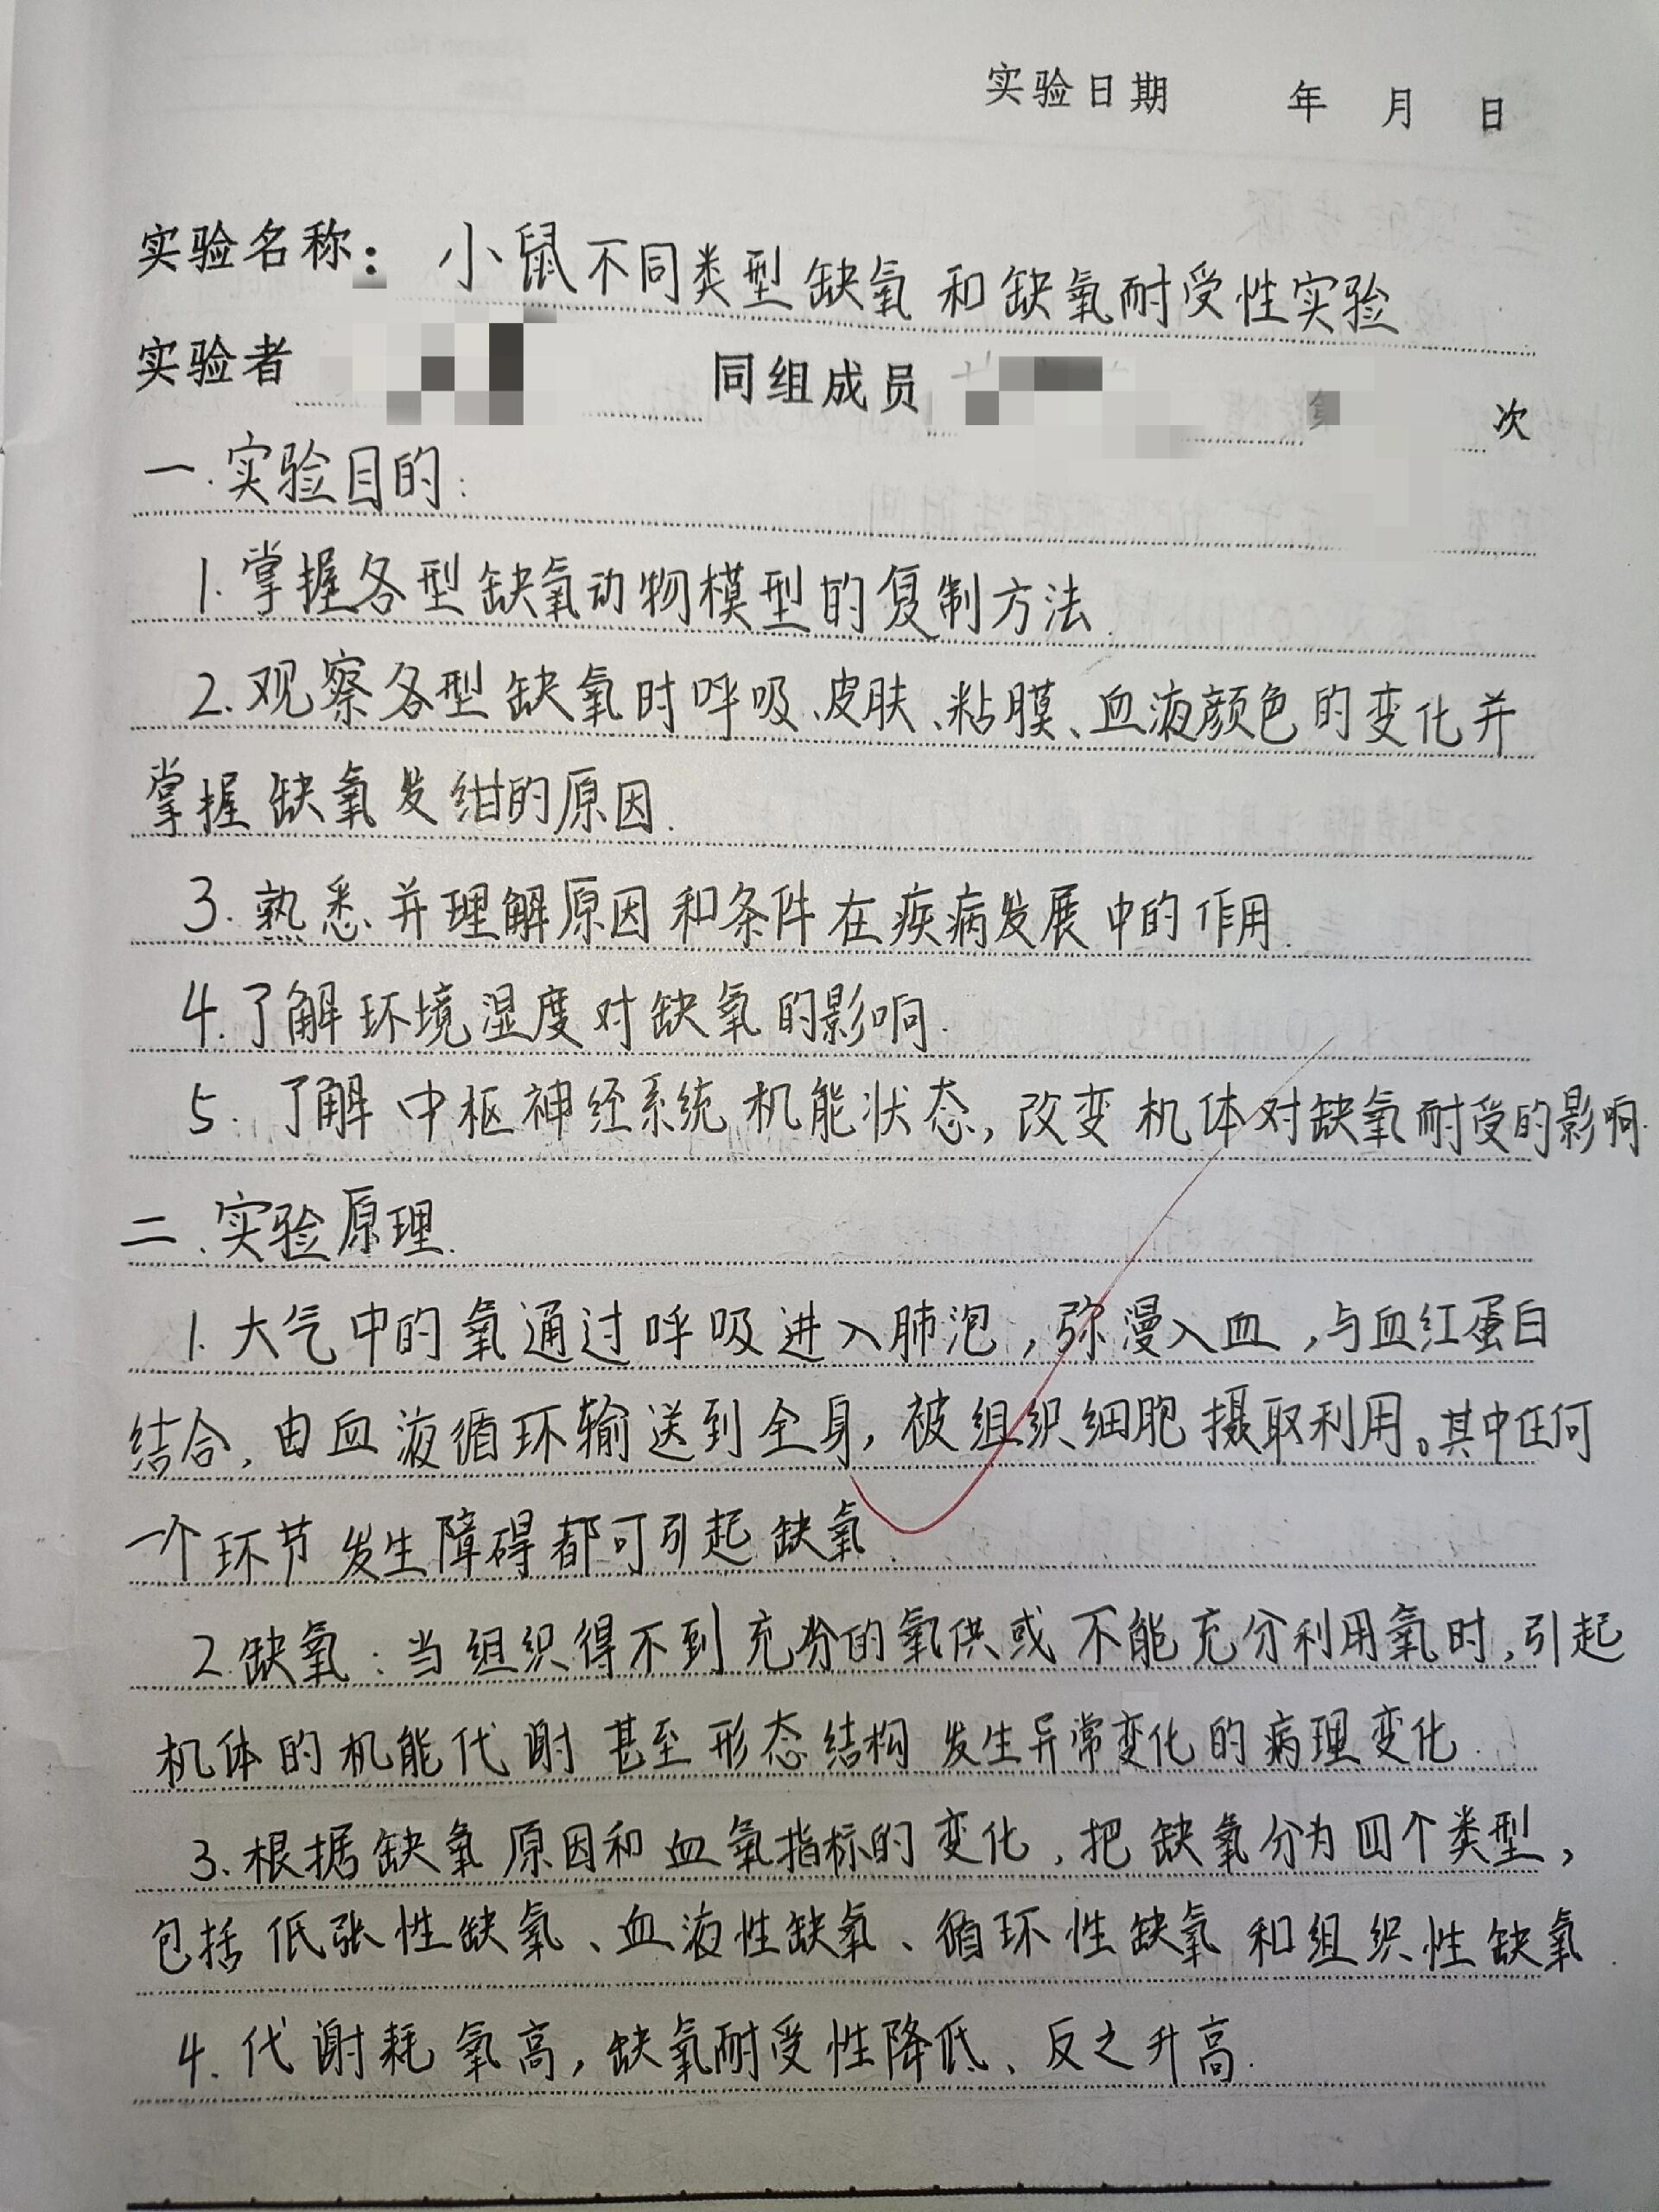 实验日期 年 月 日
实验名称: 小鼠不同类型缺氧和缺氧耐受性实验
实验者 同组成员 第 次
一.实验目的:
1.掌握各型缺氧动物模型的复制方法.
2.观察各型缺氧时呼吸、皮肤、粘膜、血液颜色的变化并
掌握缺氧发绀的原因.
3.熟悉并理解原因和条件在疾病发展中的作用.
4.了解环境湿度对缺氧的影响.
5.了解中枢神经系统机能状态,改变机体对缺氧耐受的影响.
二.实验原理.
1.大气中的氧通过呼吸进入肺泡,弥漫入血,与血红蛋白
结合,由血液循环输送到全身,被组织细胞摄取利用。其中任何
一个环节发生障碍都可引起缺氧.
2.缺氧:当组织得不到充分的氧供或不能充分利用氧时,引起
机体的机能代谢甚至形态结构发生异常变化的病理变化.
3.根据缺氧原因和血氧指标的变化,把缺氧分为四个类型,
包括低张性缺氧、血液性缺氧、循环性缺氧和组织性缺氧.
4.代谢耗氧高,缺氧耐受性降低、反之升高.